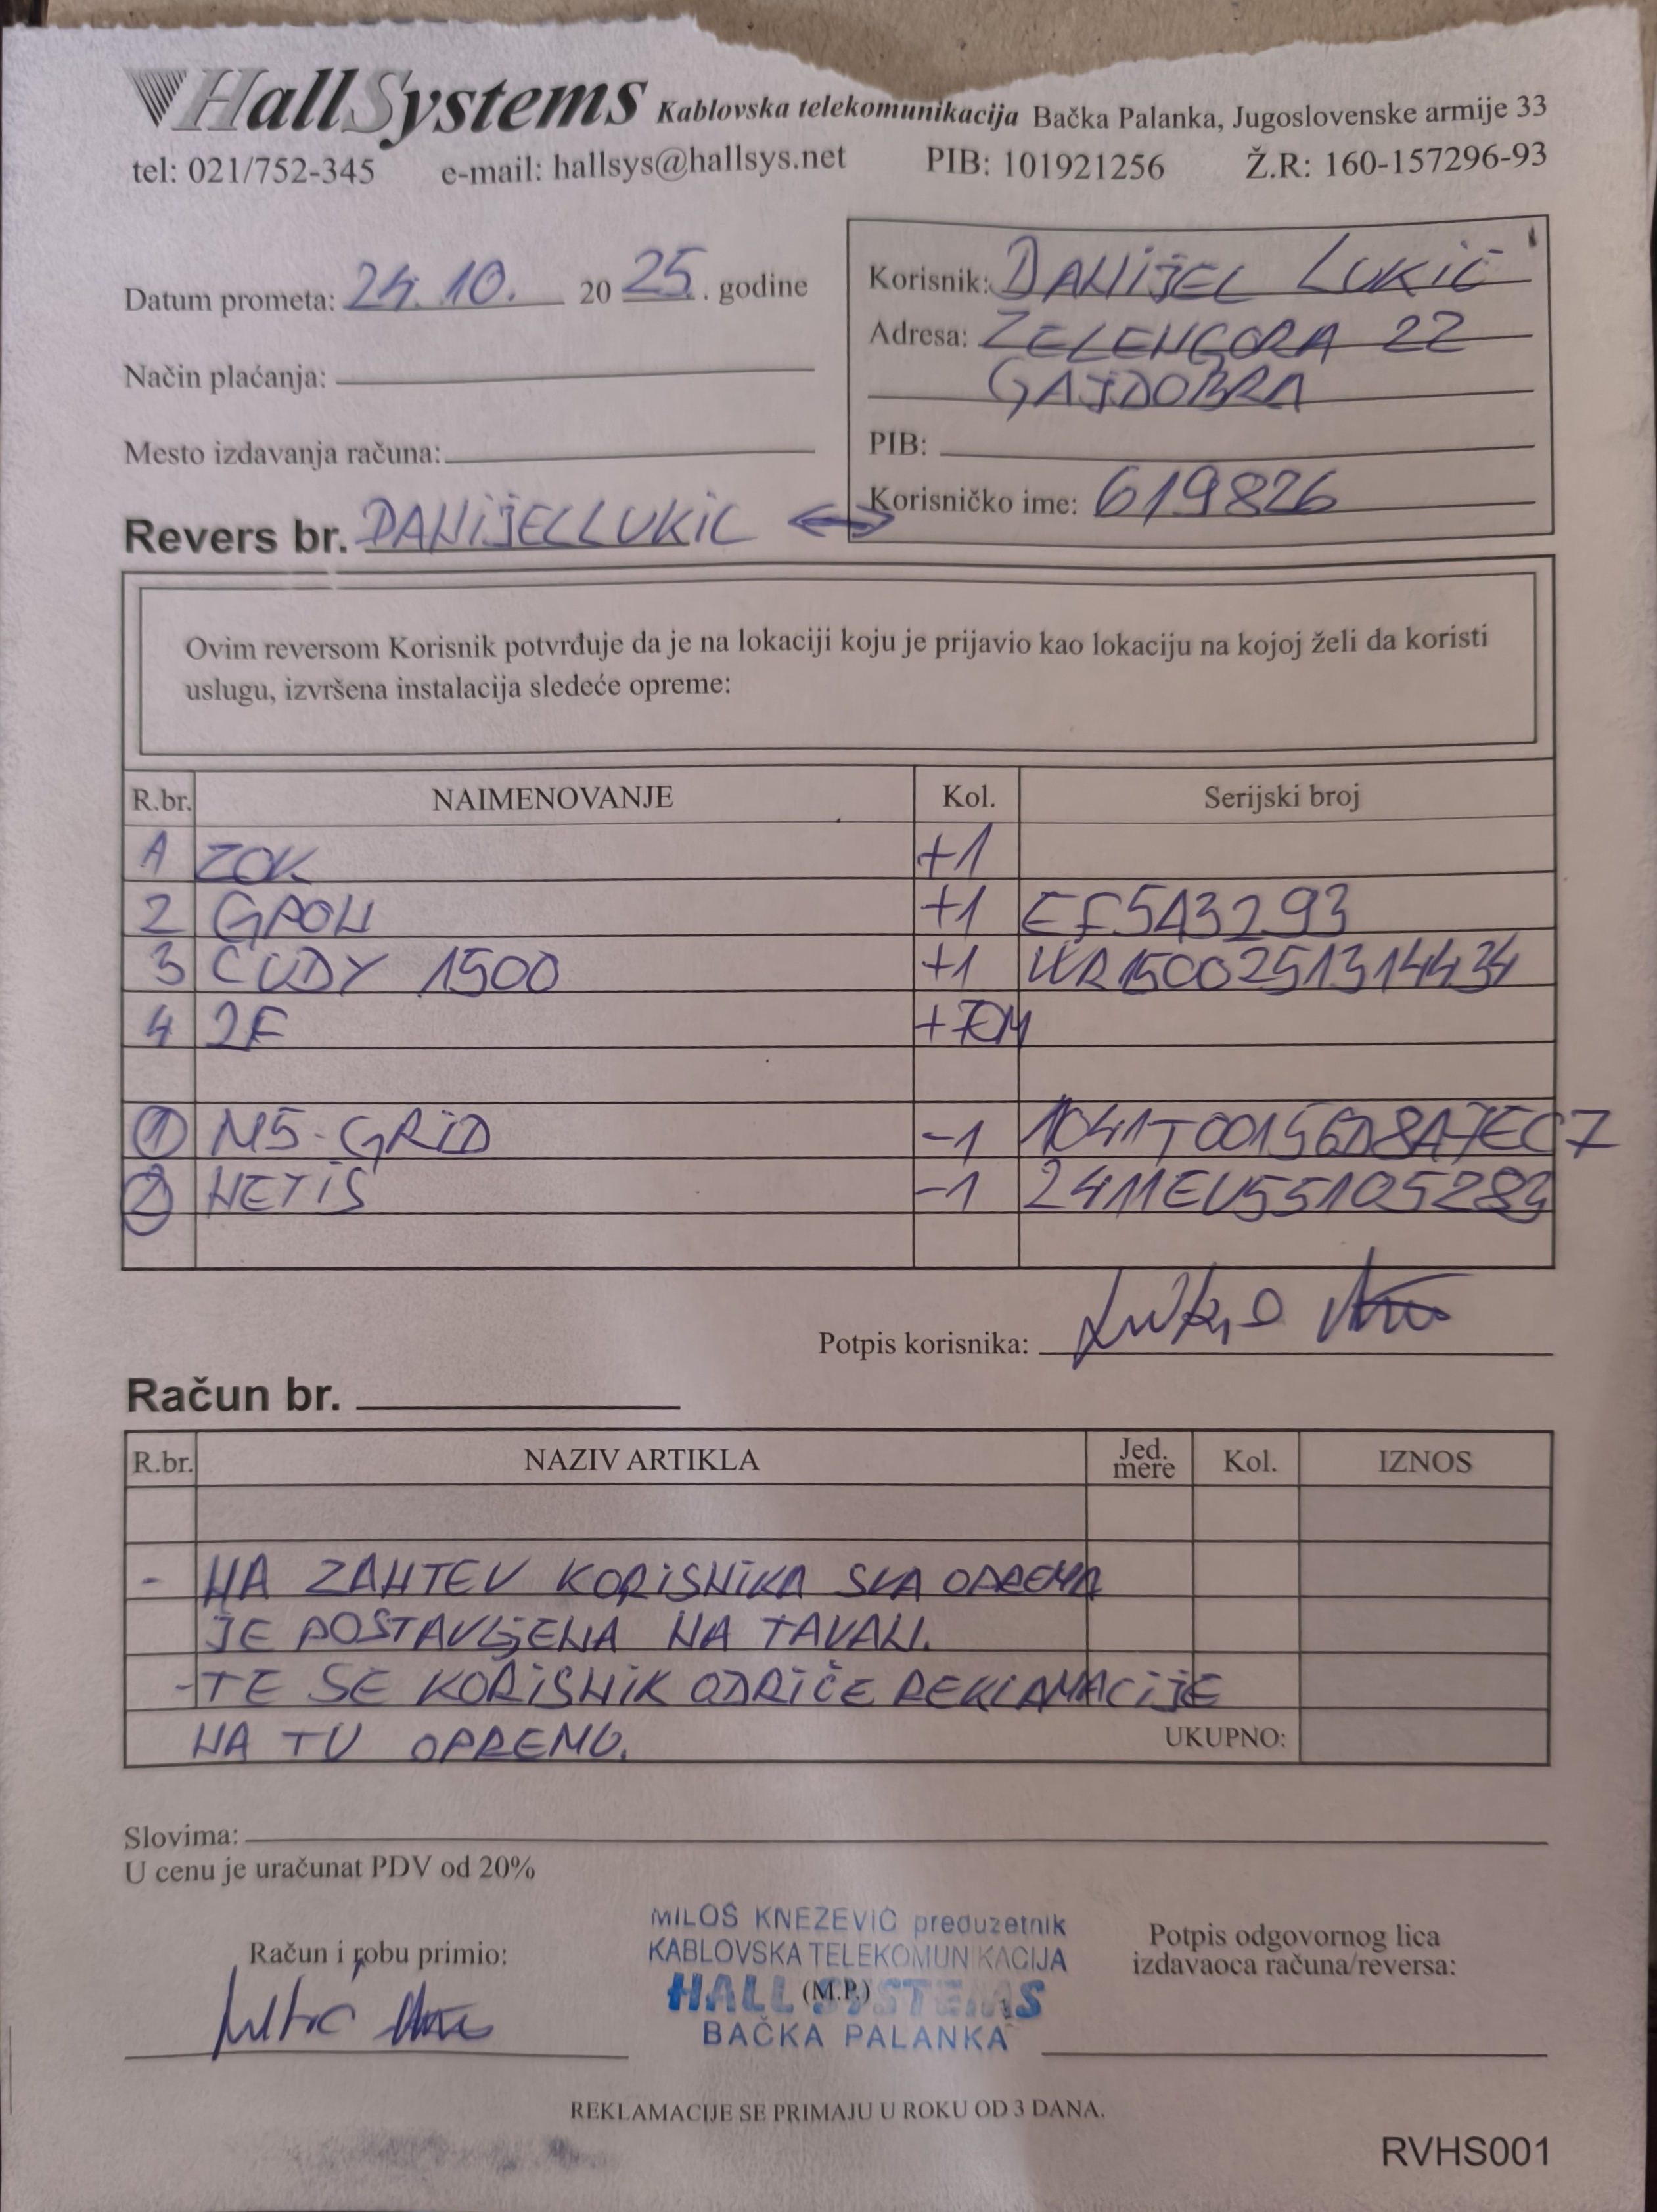 HallSystems Kablovska telekomunikacija Bačka Palanka, Jugoslovenske armije 33
tel: 021/752-345 e-mail: hallsys@hallsys.net PIB: 101921256 Ž.R: 160-157296-93
Datum prometa: 24.10. 20 25. godine
Način plaćanja:
Mesto izdavanja računa:
Korisnik: DANIJEL LUKIĆ
Adresa: ZELENGORA 22
GAJDOBRA
PIB:
Korisničko ime: 619826
Revers br. DANIJELLUKIC ↔
Ovim reversom Korisnik potvrđuje da je na lokaciji koju je prijavio kao lokaciju na kojoj želi da koristi
uslugu, izvršena instalacija sledeće opreme:
R.br. NAIMENOVANJE Kol. Serijski broj
1 ZOK +1
2 GPON +1 EF5A3293
3 CUDY 1500 +1 WR1500251314434
4 2F +70M
1 M5-GRID -1 1041T00156D8A7EC7
2 NETIS -1
Potpis korisnika:
Račun br.
R.br. NAZIV ARTIKLA Jed. mere Kol. IZNOS
- NA ZAHTEV KORISNIKA SVA OPREMA
JE POSTAVLJENA NA TAVAN.
-TE SE KORISNIK ODRIČE REKLAMACIJE
NA TU OPREMU.
UKUPNO:
Slovima:
U cenu je uračunat PDV od 20%
Račun i robu primio:
MILOŠ KNEŽEVIĆ preduzetnik
KABLOVSKA TELEKOMUNIKACIJA
HALL SYSTEMS
(M.P.)
BAČKA PALANKA
Potpis odgovornog lica
izdavaoca računa/reversa:
REKLAMACIJE SE PRIMAJU U ROKU OD 3 DANA.
RVHS001